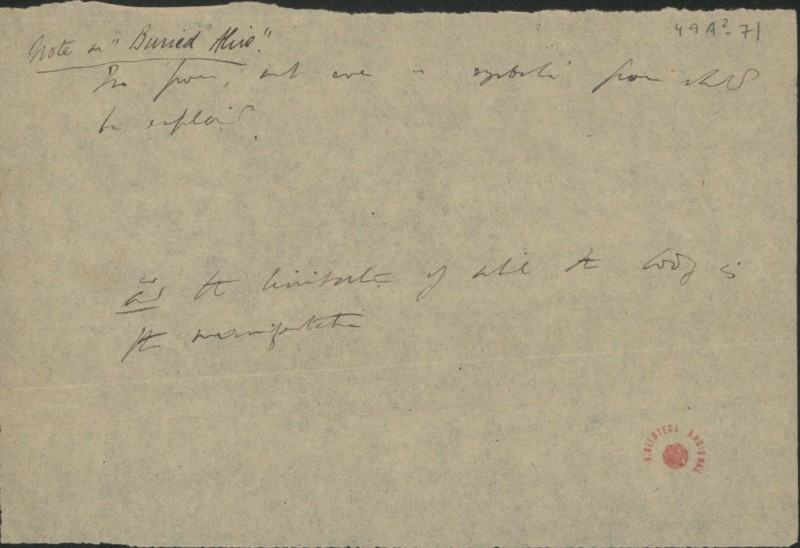 49A²-71
Note on "Buried Alive".
poem, not even a symbolic poem should
be explained.
as the limitation of which the body is
the manifestation
BIBLIOTECA NACIONAL